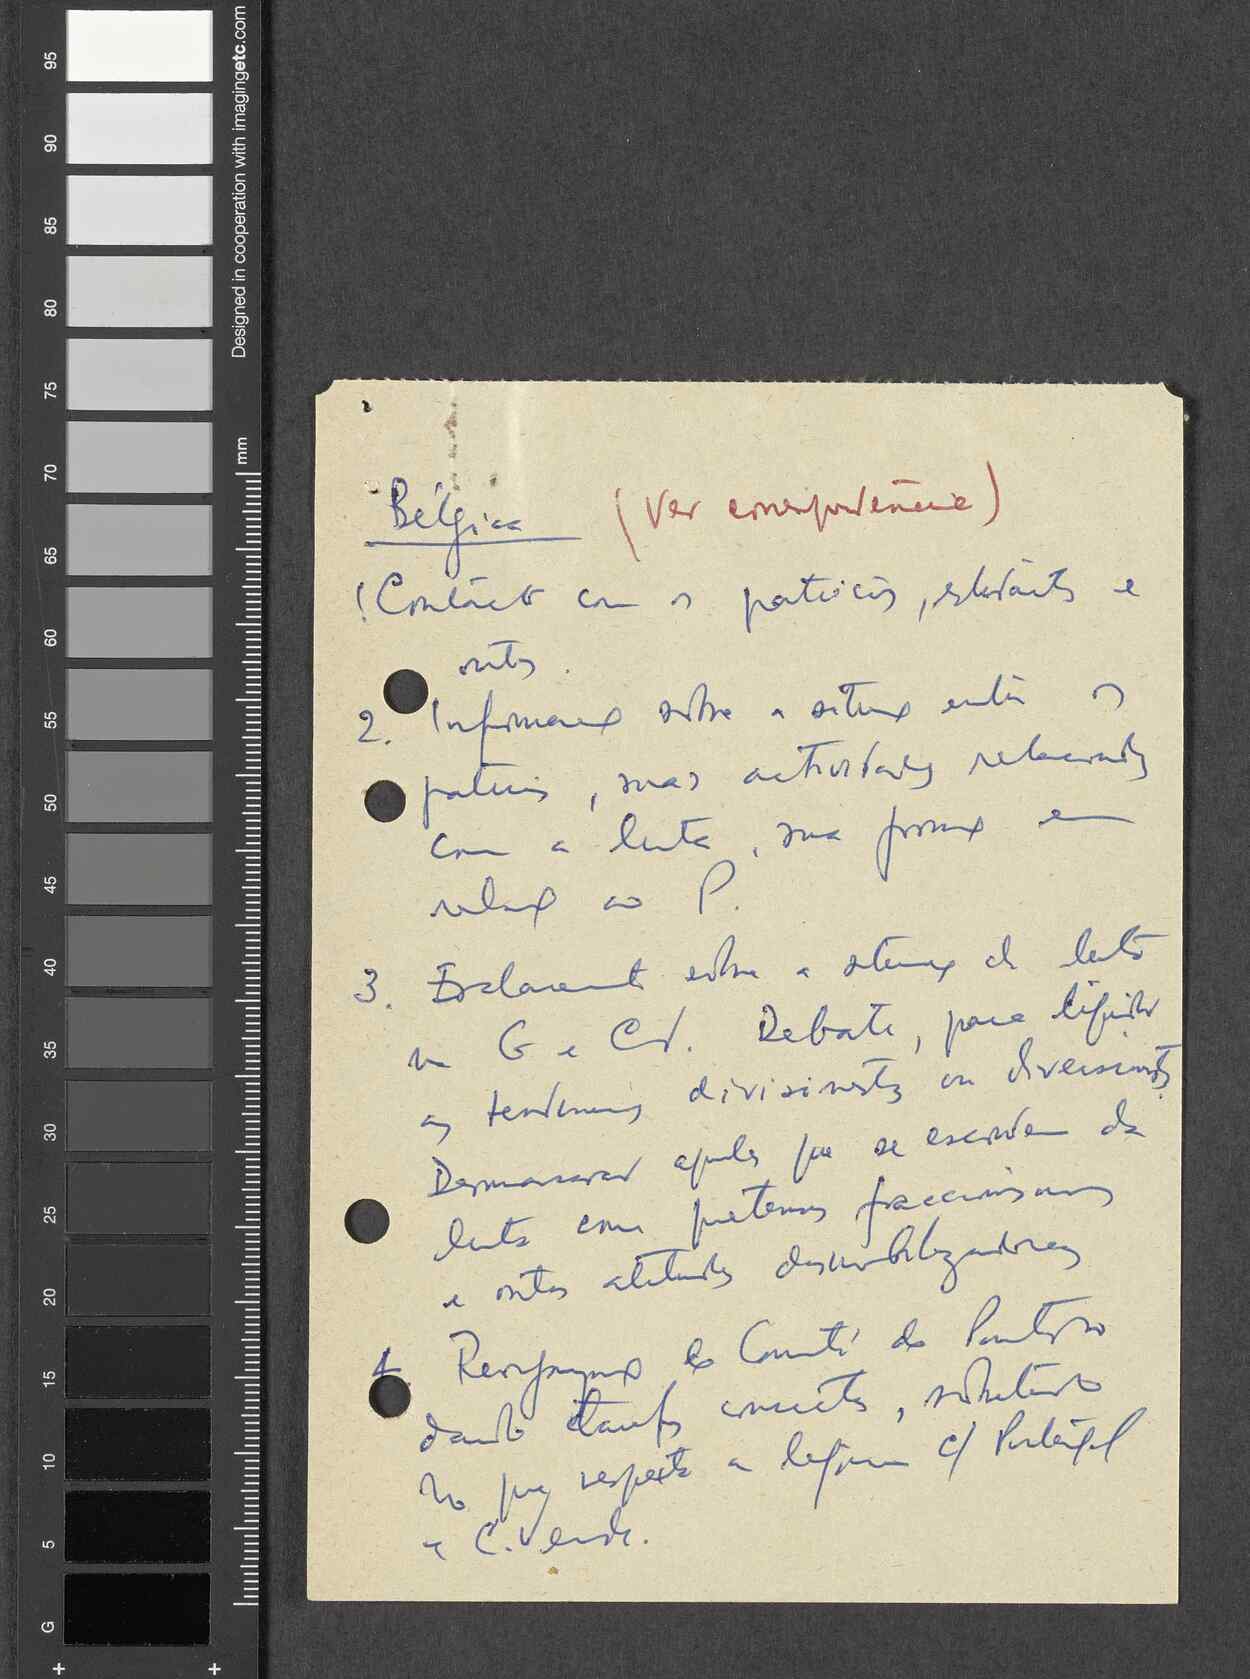 95
90
85
80
75
70
65
60
55
50
45
40
35
30
25
20
15
10
5
G
Designed in cooperation with imagingetc.com
mm
Bélgica (Ver correspondência)
1 Contacto com os patrícios, estudantes e
outros.
2. Informação sobre a situação entre os
patrícios, suas actividades relacionadas
com a luta, sua posição em
relação ao P.
3. Esclarecimento sobre a situação da luta
na G e CV. Debate, para liquidar
as tendências divisionistas ou diversionistas.
Desmascarar aqueles que se escondem da
luta com pretensos fraccionismos
e outras atitudes desmobilizadoras
4. do Comité do
dando tarefas concretas, sobretudo
no que respeita a ligação c/ Portugal
e C. Verde.